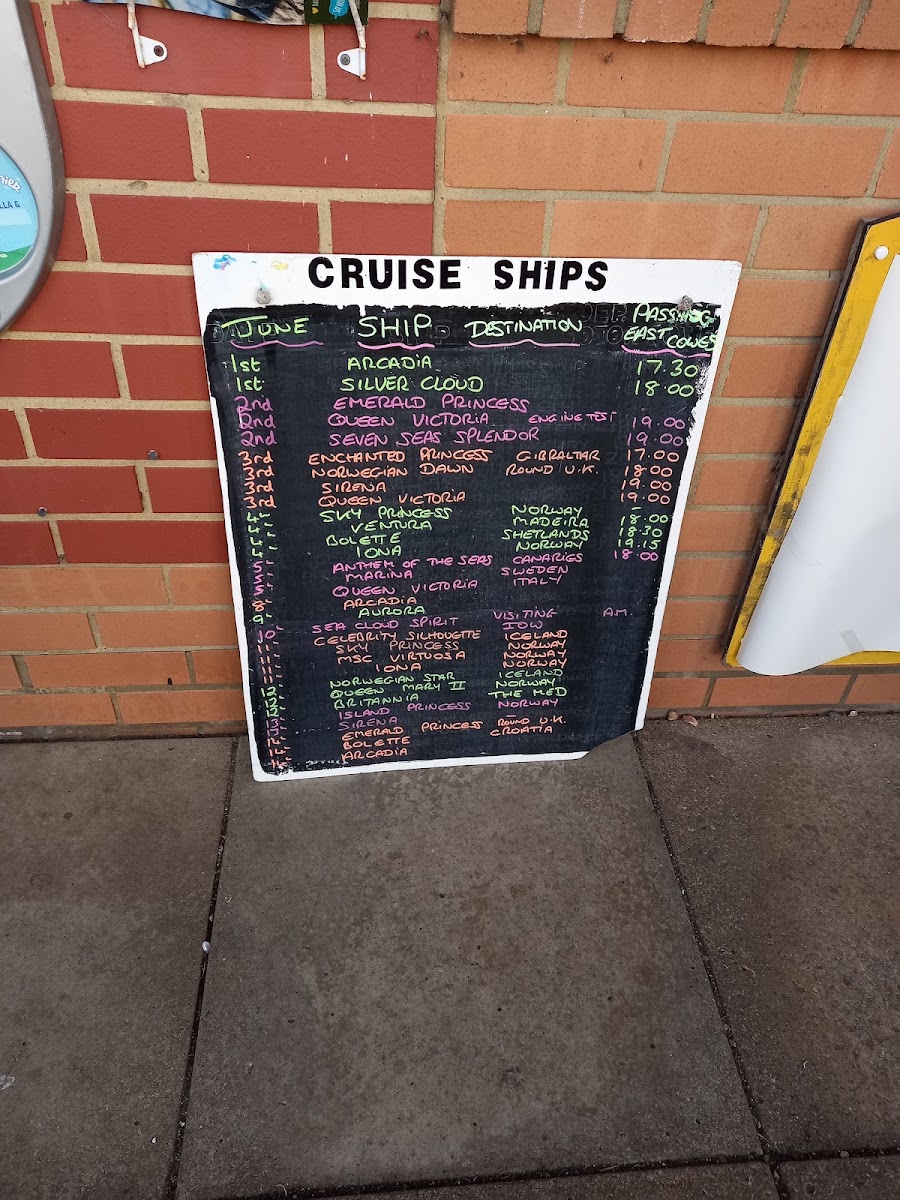 CRUISE SHIPS
JUNE SHIP DESTINATION PASSING EAST COWES
1st ARCADIA 17.30
1st SILVER CLOUD 18.00
2nd EMERALD PRINCESS
2nd QUEEN VICTORIA ENGINE TEST 19.00
2nd SEVEN SEAS SPLENDOR 19.00
3rd ENCHANTED PRINCESS GIBRALTAR 17.00
3rd NORWEGIAN DAWN ROUND U.K. 18.00
3rd SIRENA 19.00
3rd QUEEN VICTORIA 19.00
4" SKY PRINCESS NORWAY -
4" VENTURA MADEIRA 18.00
4" BOLETTE SHETLANDS 18.30
4" IONA NORWAY 19.15
5" ANTHEM OF THE SEAS CANARIES 18.00
5" MARINA SWEDEN
5" QUEEN VICTORIA ITALY
8" ARCADIA
9" AURORA
10" SEA CLOUD SPIRIT VISITING IOW A.M.
11" CELEBRITY SILHOUETTE ICELAND
11" SKY PRINCESS NORWAY
11" MSC VIRTUOSA NORWAY
11" IONA NORWAY
12" NORWEGIAN STAR ICELAND
12" QUEEN MARY II NORWAY
12" BRITANNIA THE MED
13" ISLAND PRINCESS NORWAY
13" SIRENA
EMERALD PRINCESS ROUND U.K.
14" BOLETTE CROATIA
14" ARCADIA